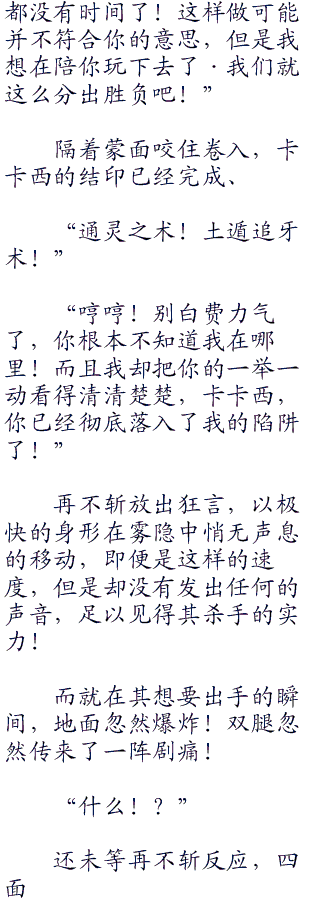 都没有时间了！这样做可能
并不符合你的意思，但是我
想在陪你玩下去了·我们就
这么分出胜负吧！”
隔着蒙面咬住卷入，卡
卡西的结印已经完成、
“通灵之术！土遁追牙
术！”
“哼哼！别白费力气
了，你根本不知道我在哪
里！而且我却把你的一举一
动看得清清楚楚，卡卡西，
你已经彻底落入了我的陷阱
了！”
再不斩放出狂言，以极
快的身形在雾隐中悄无声息
的移动，即便是这样的速
度，但是却没有发出任何的
声音，足以见得其杀手的实
力！
而就在其想要出手的瞬
间，地面忽然爆炸！双腿忽
然传来了一阵剧痛！
“什么！？”
还未等再不斩反应，四
面